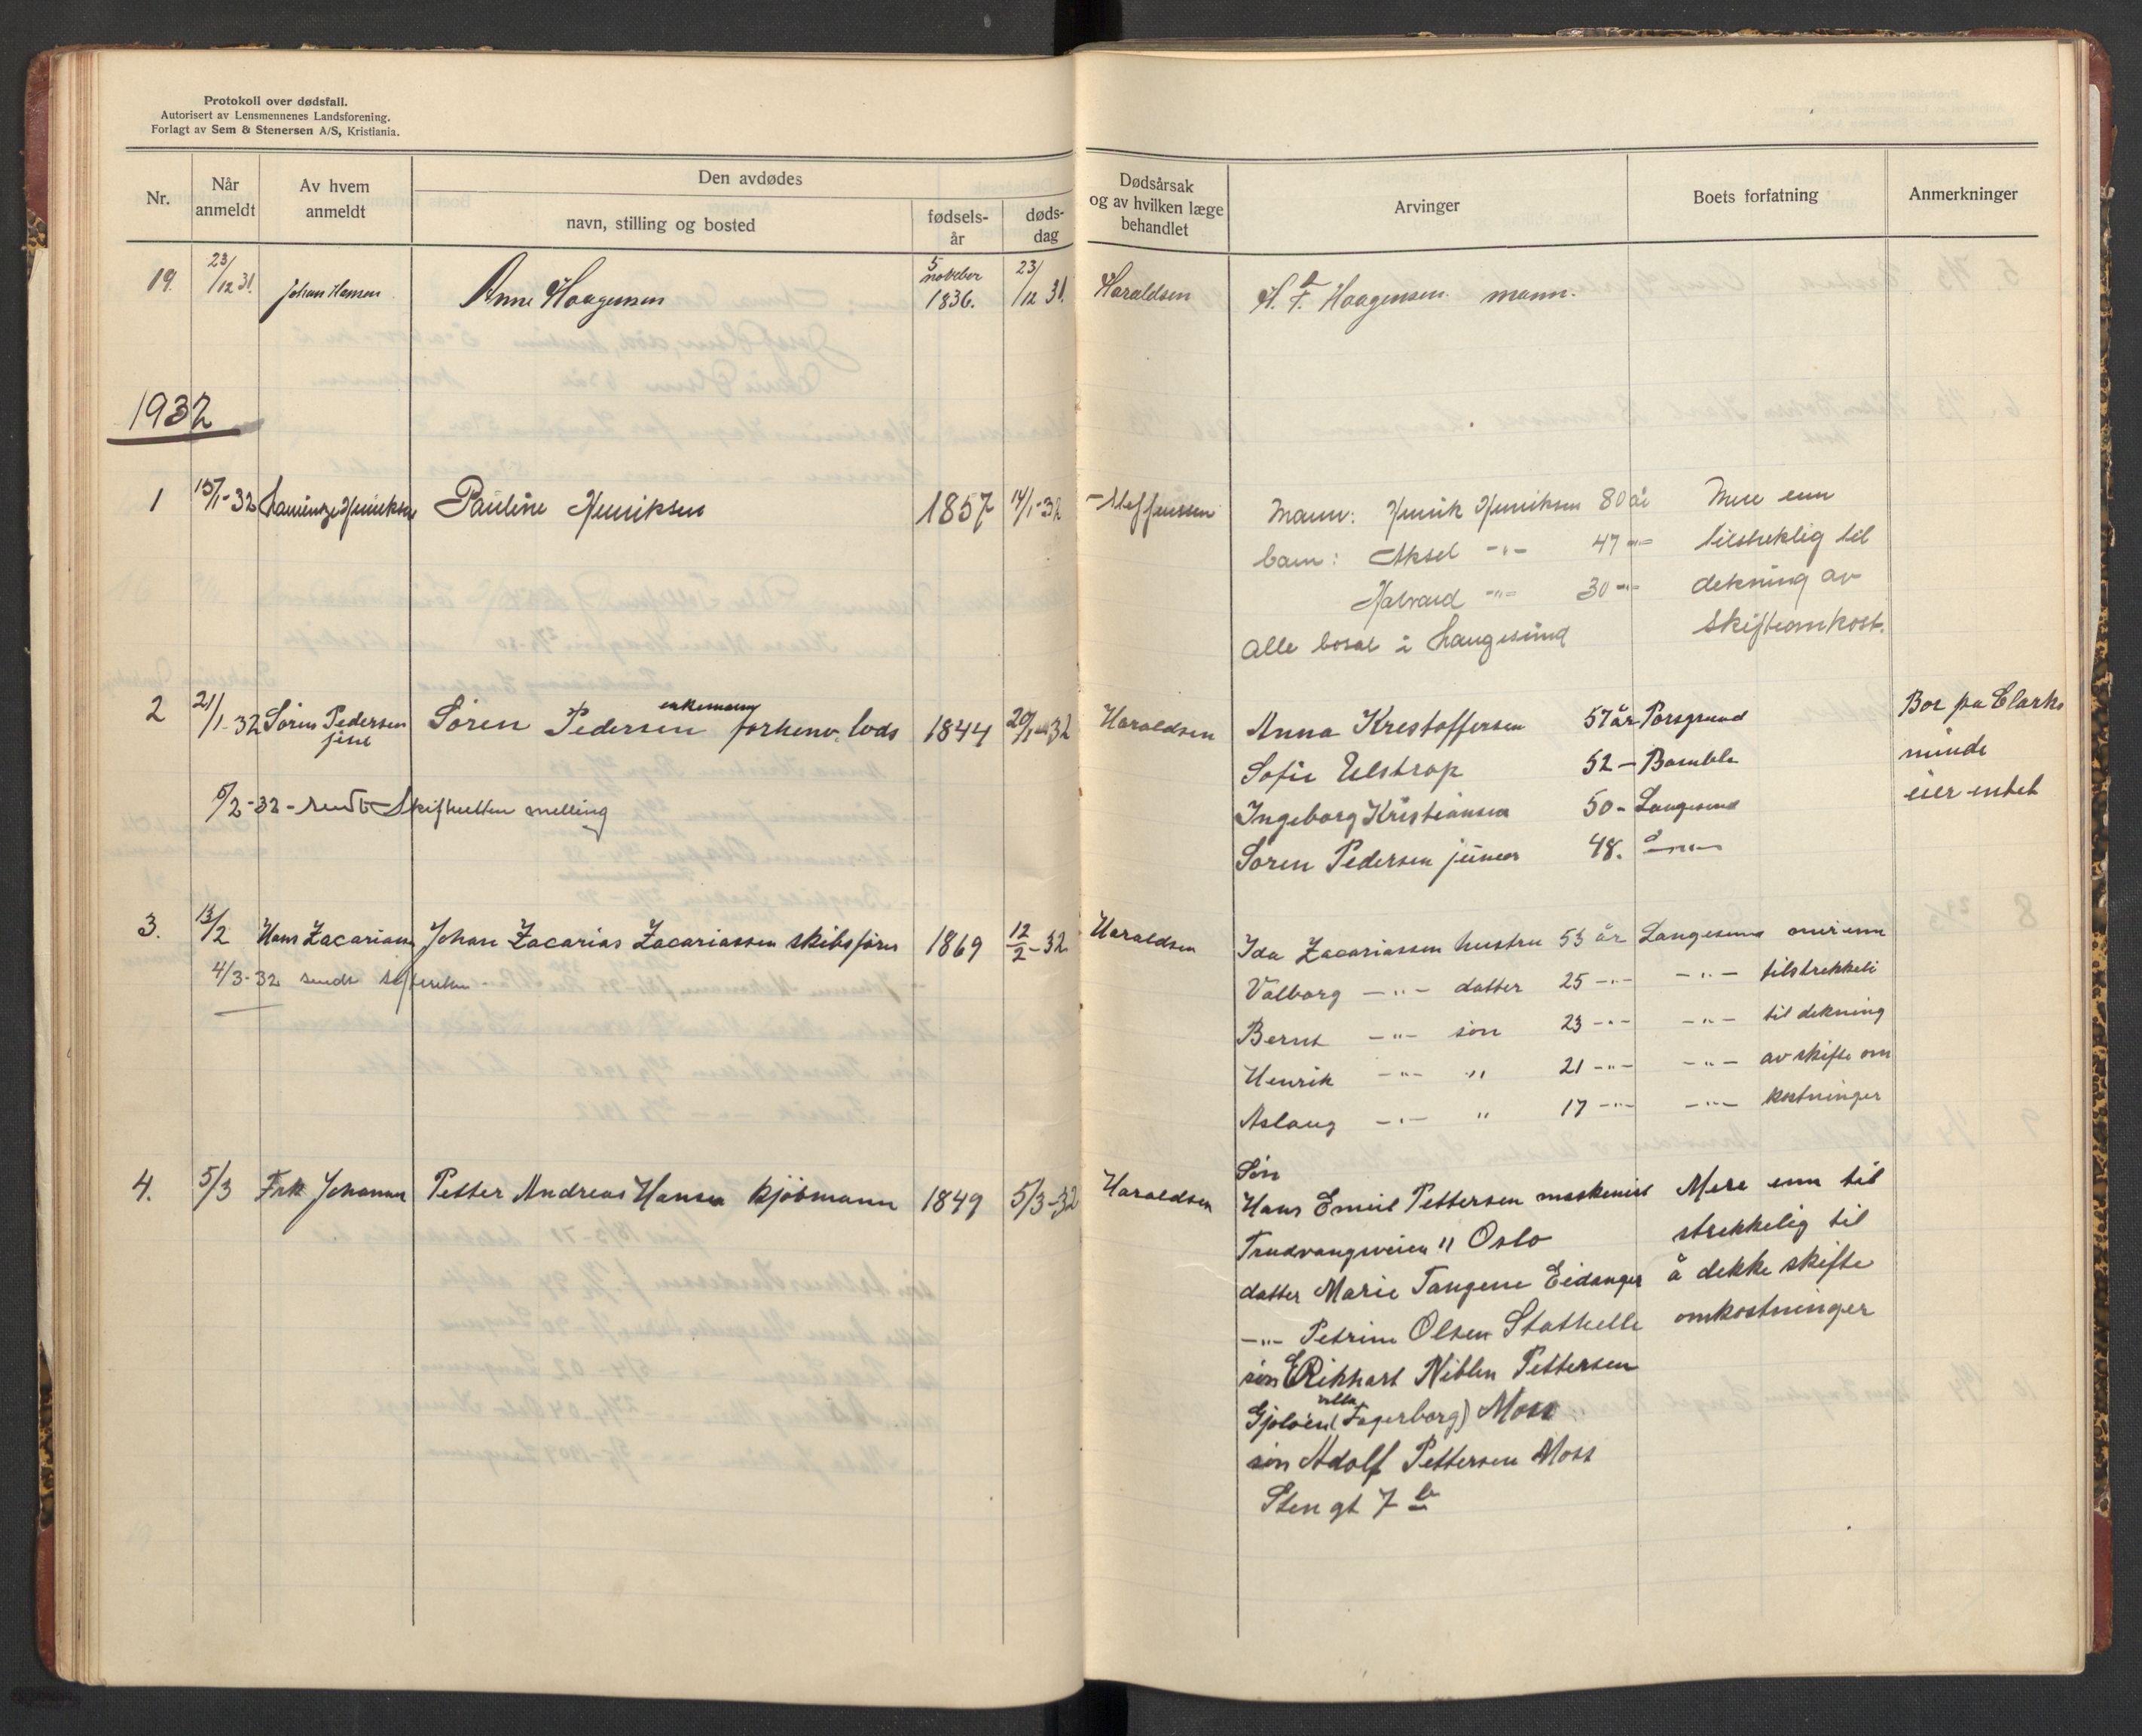 Protokoll over dødsfall.
Autorisert av Lensmennenes Landsforening.
Forlagt av Sem & Stenersen A/S, Kristiania.
Nr.
Når anmeldt
Av hvem anmeldt
Den avdødes
navn, stilling og bosted
fødsels-år
døds-dag
Dødsårsak og av hvilken læge behandlet
Arvinger
Boets forfatning
Anmerkninger
19. 23/12 31. Johan Hansen Anne Haagensen 5 november 1836. 23/12 31. Haraldsen H. F. Haagensen. mann.
1932
1 15/1-32 Henriksen Pauline Henriksen 1857 14/1-32 Steffensen Mann: Henrik Henriksen 80 år Mere enn
barn: Aksel -"- 47 -"- tilstreklig til
Halvard -"- 30 -"- dekning av
Alle bosat i Langesund skifteomkost.
2 21/1-32 Søren Pedersen Søren Pedersen enkemann forhenv. lods 1844 20/1-32 Haraldsen Anna Kristoffersen 57 år Porsgrund Bor på Clarks
Sofie Ulstrop 52 - Bamble minde
6/2-32 - sendt Skifteretten melling Ingeborg Kristiansen 50 - Langesund eier intet
Søren Pedersen junior 48. -"-
3. 13/2 Hans Zacariassen Johan Zacarias Zacariassen skibsfører 1869 12/2-32 Haraldsen Ida Zacariassen hustru 53 år Langesund mer enn
4/3-32 sendt skifteretten Valborg -"- datter 25 -"- -"- tilstrekkeli
Bernt -"- søn 23 -"- -"- til dekning
Henrik -"- " 21 -"- -"- av skifte om
Aslaug -"- " 17 -"- -"- kostninger
4. 5/3 Frk Johanne Petter Andreas Hansen kjøbmann 1849 5/3-32 Haraldsen Søn
Hans Emil Pettersen maskinist Mere enn til
Trudvangsveien 11 Oslo strekkelig til
datter Marie Tangene Eidanger å dekke skifte
-"- Petrine Olsen Stathelle omkostninger
søn Rikhart Niblen Pettersen
Gjeløen (villa Fagerborg) Moss
søn Adolf Pettersen Moss
Sten gt 7 b